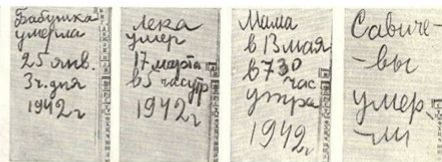 Бабушка
умерла
25 янв.
3 ч. дня
1942 г
Лека
умер
17 марта
в 5 часутр
1942 г
Мама
в 13 мая
в 730
час
утра
1942
Савиче-
-вы
умер
-ли